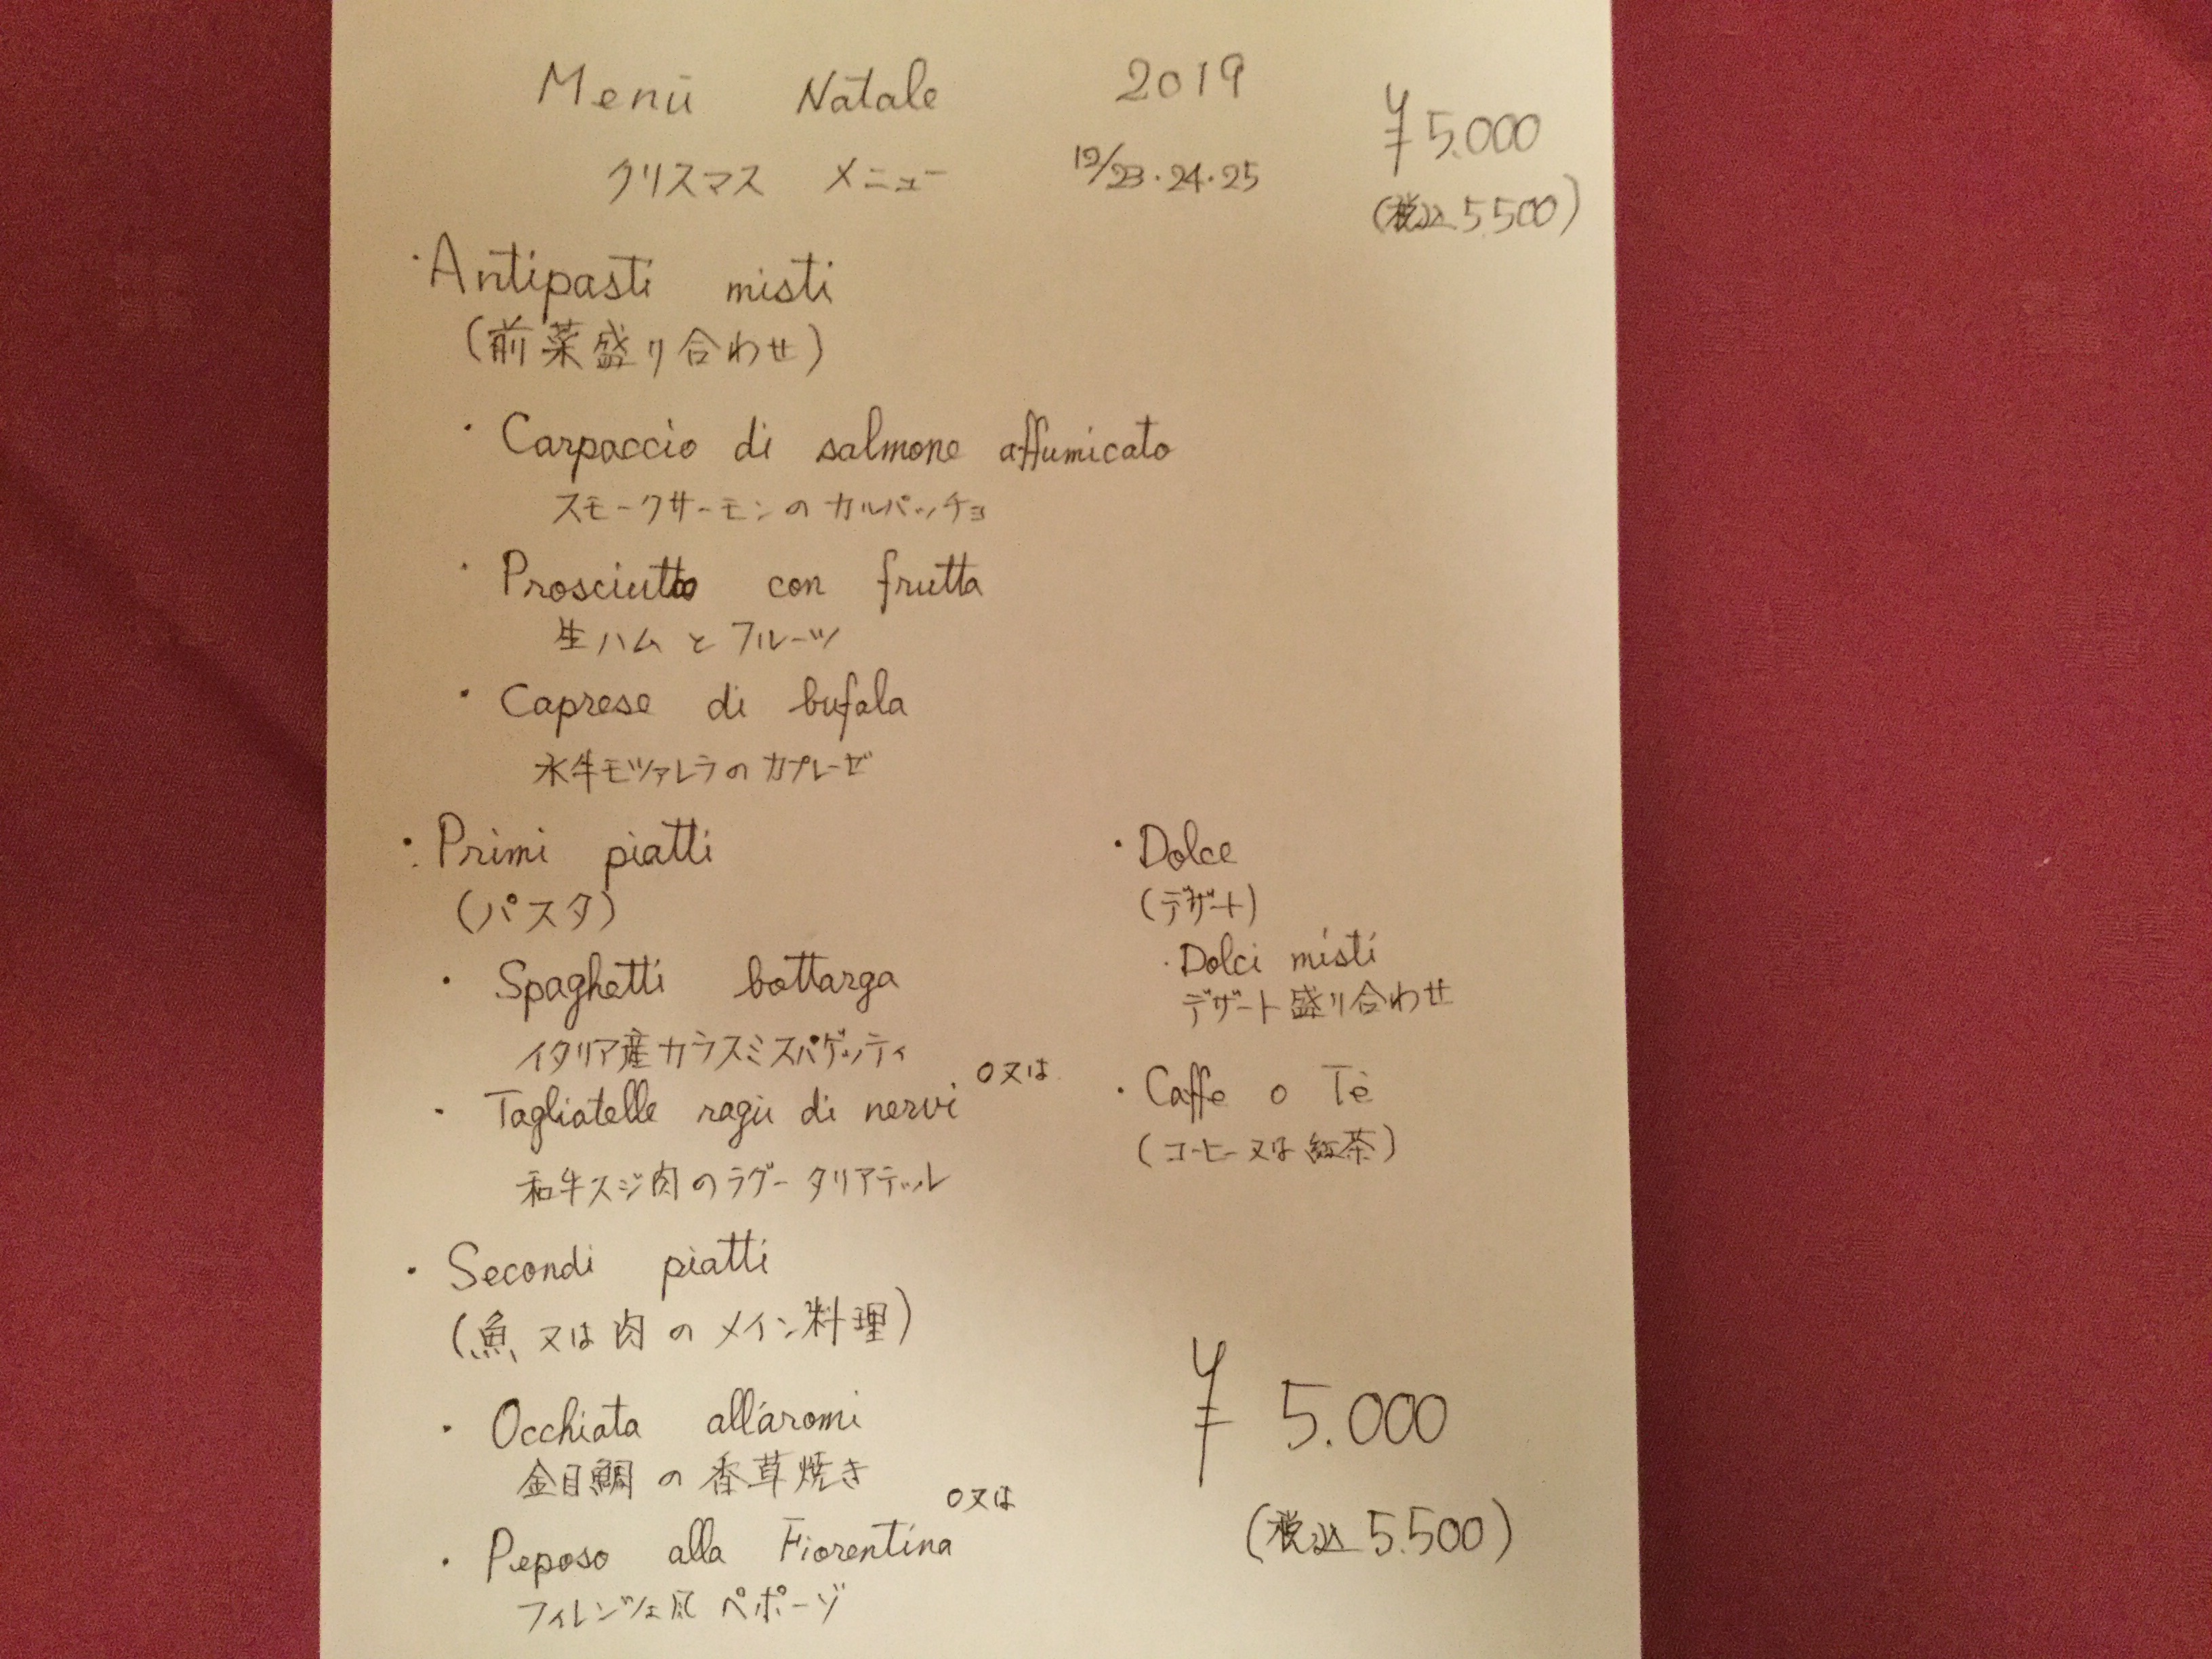 Menù Natale 2019
クリスマス メニュー 12/23・24・25
¥5.000
(税込5.500)
・Antipasti misti
(前菜盛り合わせ)
・Carpaccio di salmone affumicato
スモークサーモンのカルパッチョ
・Prosciutto con frutta
生ハムとフルーツ
・Caprese di bufala
水牛モツァレラのカプレーゼ
・Primi piatti
(パスタ)
・Spaghetti bottarga
イタリア産カラスミスパゲッティ
o又は
・Tagliatelle ragù di nervi
和牛スジ肉のラグー タリアテッレ
・Secondi piatti
(魚又は肉のメイン料理)
・Occhiata all'aromi
金目鯛の香草焼き
o又は
・Peposo alla Fiorentina
フィレンツェ風ペポーゾ
・Dolce
(デザート)
・Dolci misti
デザート盛り合わせ
・Caffe o Tè
(コーヒー又は紅茶)
¥5.000
(税込5.500)